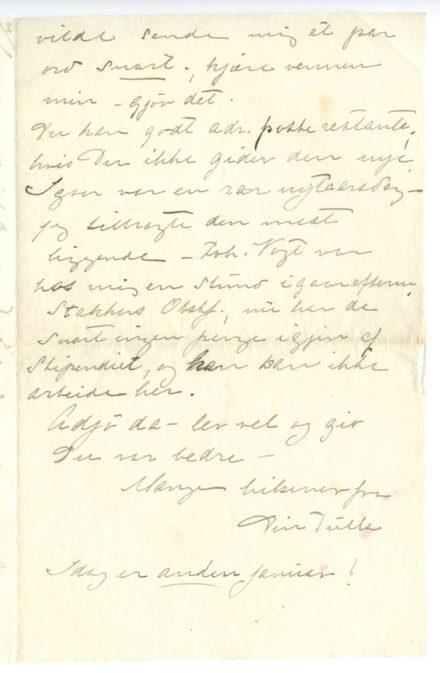 vilde sende mig ét par
ord snart, kjære vennen
min – gjør det.
Du kan godt adr. poste restante,
hvis Du ikke gider den nye
Igaar var en rar nytaarsdag –
jeg tilbragte den mest
liggende – Joh. Vogt var
hos mig en stund igaar efterm.
Stakkars Obstf., nu har de
snart ingen penge igjen af
Stipendiet, og han kan ikke
arbeide her.
Adjø da – lev vel og giv
Du var bedre –
Mange hilsener fra
Din Tulla
Idag er anden januar!